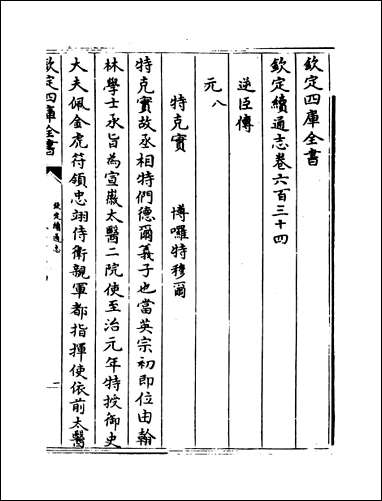 欽定四庫全書
欽定續通志卷六百三十四
逆臣傳
元八
特克實 博囉特穆爾
特克實故丞相特們德爾義子也當英宗初即位由翰
林學士承旨為宣徽太醫二院使至治元年特授御史
大夫佩金虎符領忠翊侍衛親軍都指揮使依前太醫
欽定四庫全書
欽定續通志
一